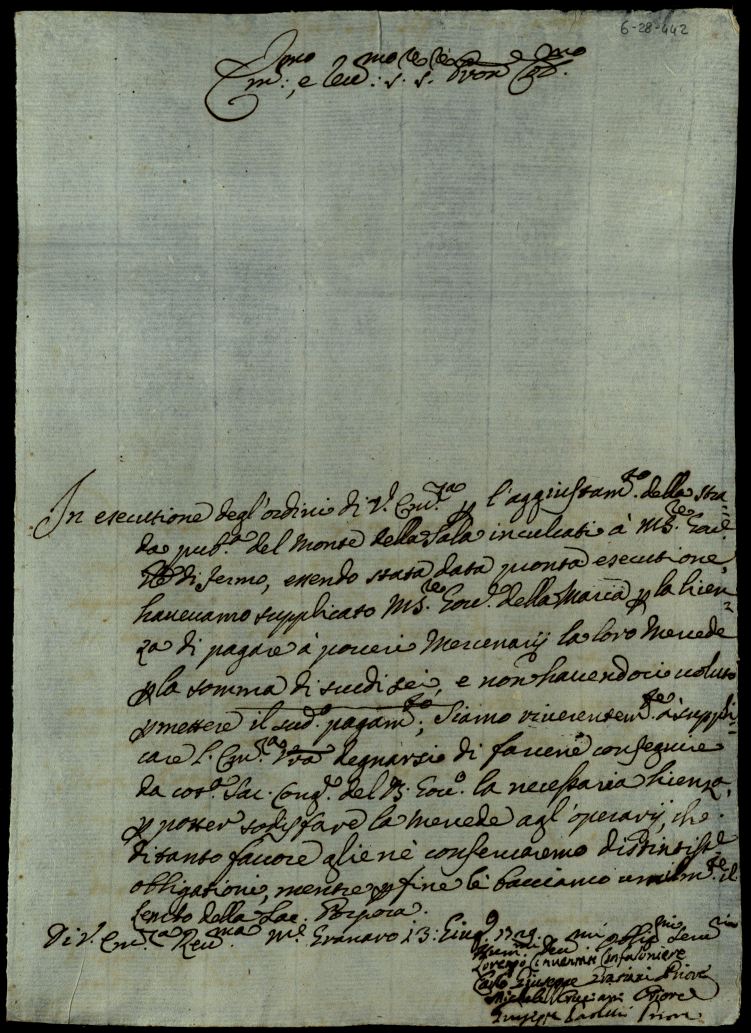 6-28-442
Em:mo, e Reu:mo S.re S.re Pron e
In esecutione degl'ordini di V. Em.za p l'aggiustam.to della stra=
da pub.a del Monte della Sala inculcati à M.re Gou.
di Fermo, essendo stata data pronta esecutione,
haueuamo supplicato M.re Gou.e della Marca p la licen=
za di pagare à poueri Mercenarij la loro Mercede
p la somma di scudi sei, e non hauendoci uoluto
pmettere il sud.o pagam.to, Siamo riuerentem.te à suppli=
care l'Em.za Vra degnarsi di farcene conseguire
da cot.a Sac. Cong.e del B. Gou.o la necessaria licenza,
p potter sodisfare la Mercede agl'operarij, che
di tanto fauore gliene conseruaremo distintiss.e
obligationi, mentre p fine le bacciamo umilm.te il
lembo della Sac. Porpora.
Di V. Em.za Reu.ma M.e Granaro 13: Giug.o 1729
Humi.mi Deu.mi Oblig.mi Seru.ri
Lorenzo Confaloniere
Carlo Giuseppe Priore
Michele Priore
Giuseppe Paolini Priore